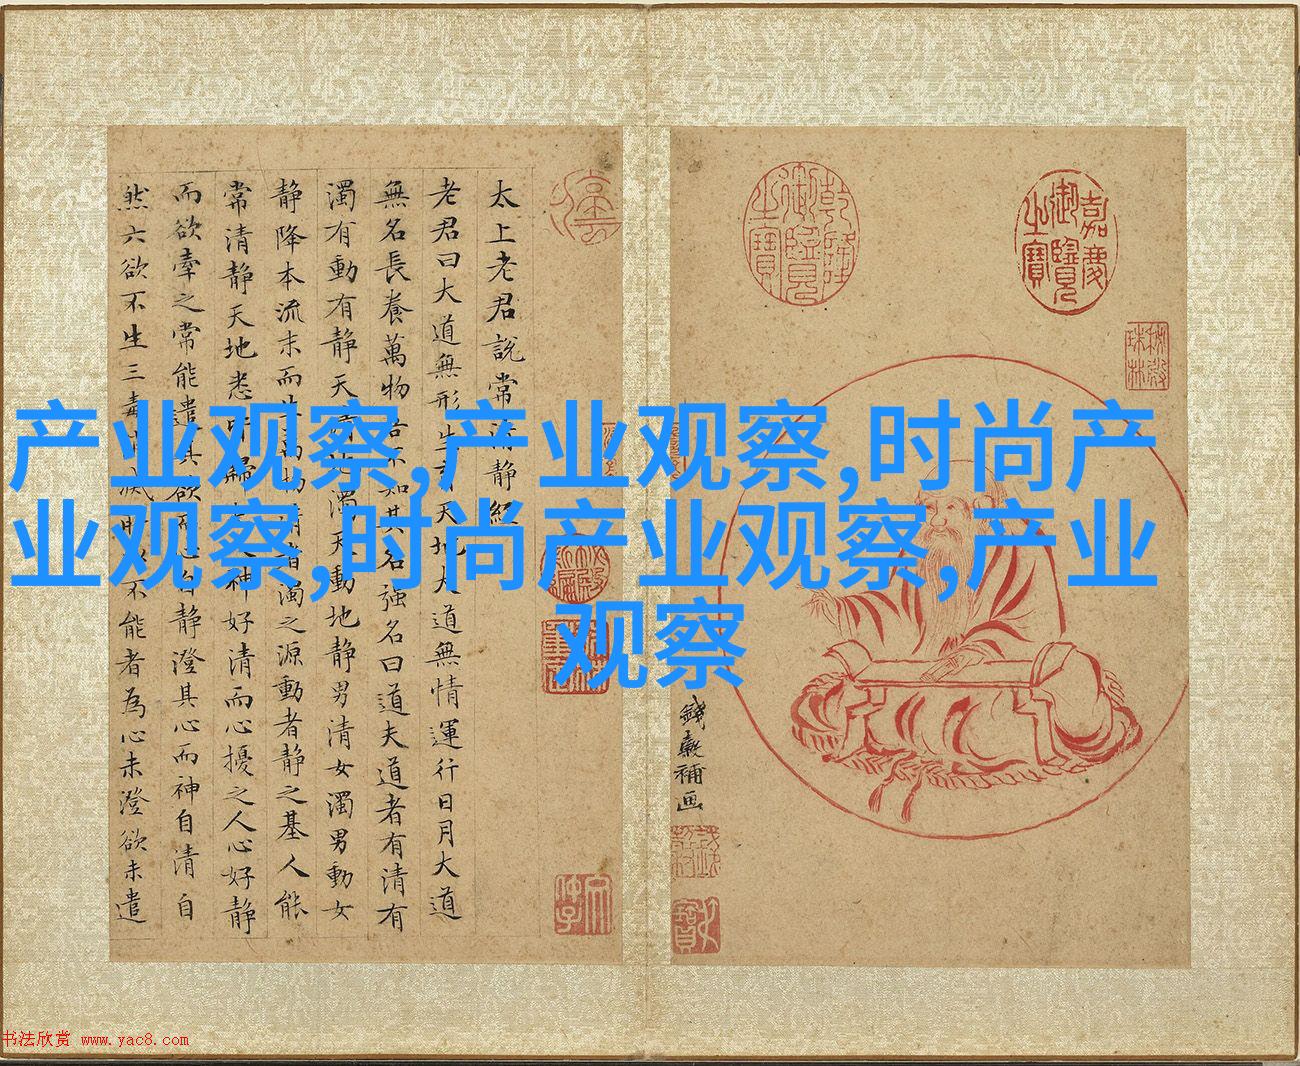 产业观察,产业观察,时尚产
业观察,时尚产业观察,产业
观察
嘉慶御覽之寶
乾隆御覽之寶
錢穀補画
太上老君說常清静經
老君曰大道無形生育天地大道無情運行日月大道
無名長養萬物吾不知其名強名曰道夫道者有清有
濁有動有静天清地濁天動地静男清女濁男動女
静降本流末而生萬物清者濁之源動者静之基人能
常清静天地悉皆歸夫人神好清而心擾之人心好静
而欲牽之常能遣其欲而心自静澄其心而神自清自
然六欲不生三毒消滅所以不能者為心未澄欲未遣
书法欣赏 www.yac8.com